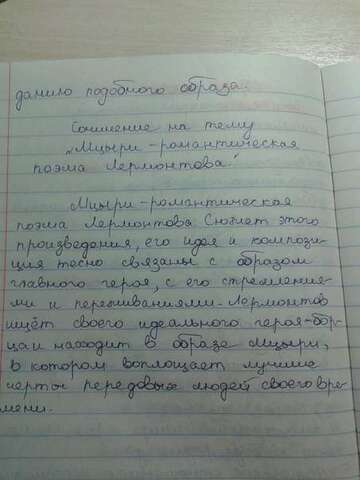 данию подобного образа.
Сочинение на тему
„Мцыри - романтическая
поэма Лермонтова."
Мцыри - романтическая
поэма Лермонтова. Сюжет этого
произведения, его идея и компози-
ция тесно связаны с образом
главного героя, с его стремления-
ми и переживаниями. Лермонтов
ищёт своего идеального героя-бор-
ца и находит в образе Мцыри,
в котором воплощает лучшие
черты передовых людей своего вре-
мени.